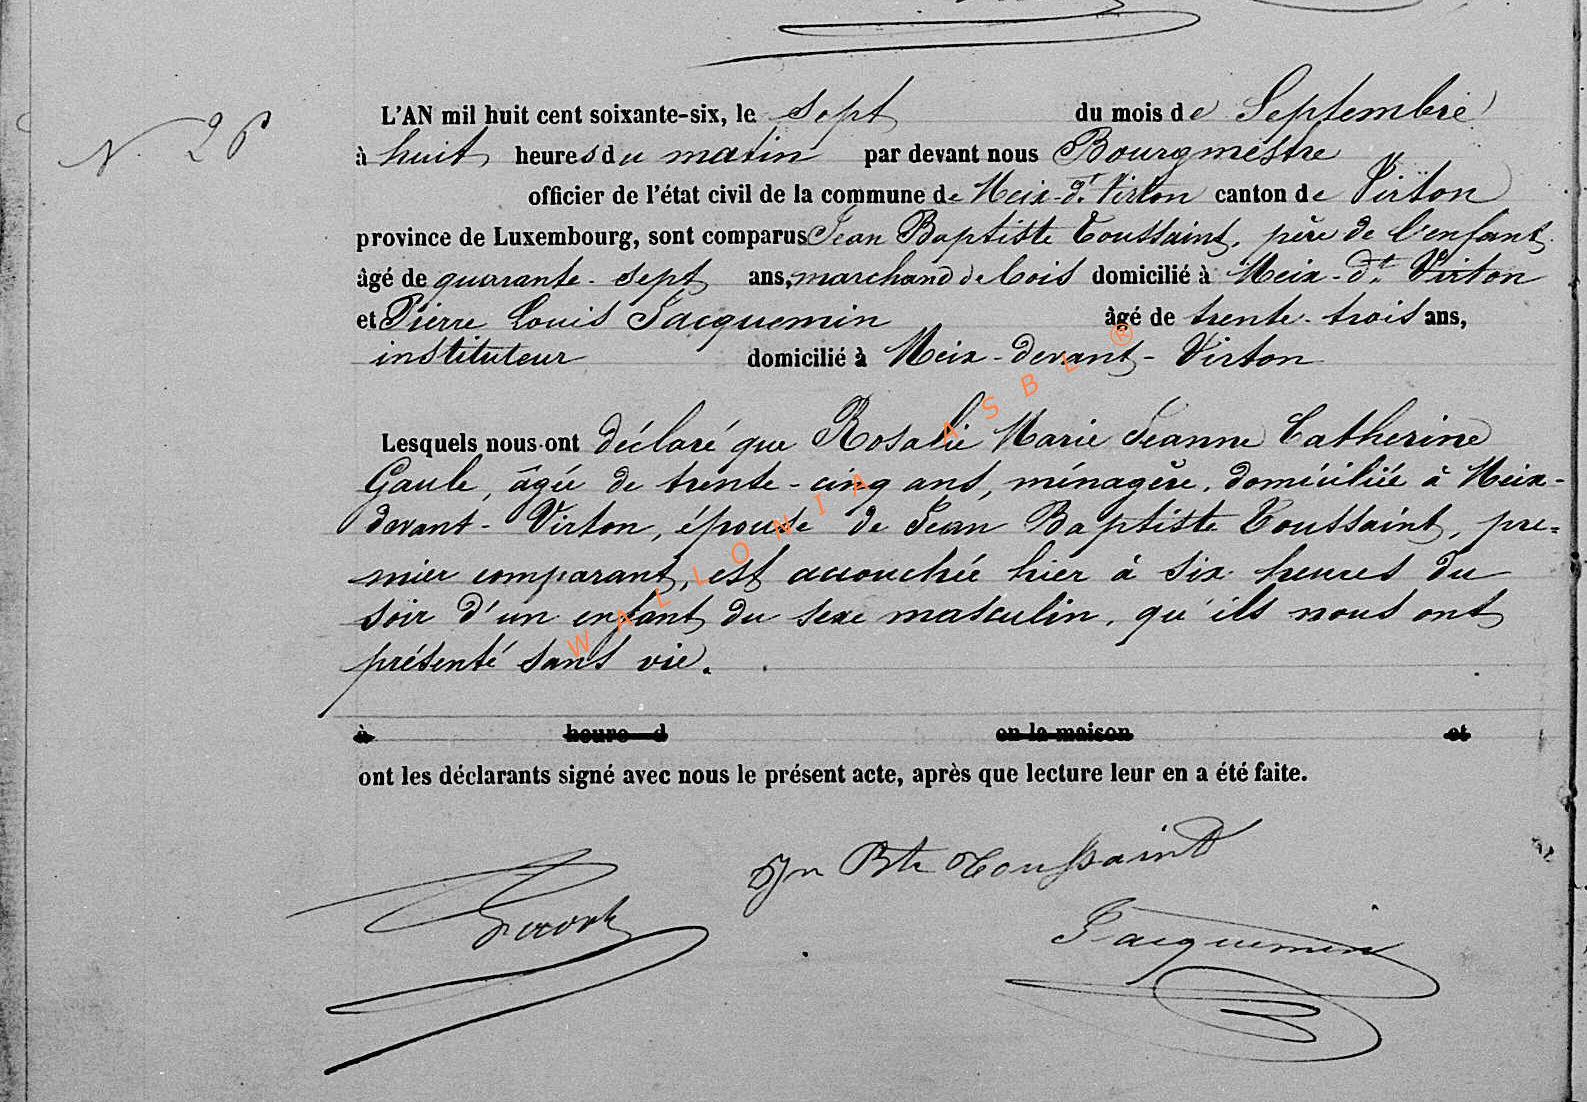 N. 26
L'AN mil huit cent soixante-six, le sept du mois de Septembre
à huit heures du matin par devant nous Bourgmestre
officier de l'état civil de la commune de Meix-dt. Virton canton de Virton
province de Luxembourg, sont comparus Jean Baptiste Toussaint, père de l'enfant
âgé de quarante-sept ans, marchand de bois domicilié à Meix-dt. Virton
et Pierre Louis Jacquemin âgé de trente-trois ans,
instituteur domicilié à Meix-devant-Virton
Lesquels nous ont déclaré que Rosalie Marie Jeanne Catherine
Gaule, âgée de trente-cinq ans, ménagère, domiciliée à Meix-
devant-Virton, épouse de Jean Baptiste Toussaint, pre=
mier comparant, est accouchée hier à six heures du
soir d'un enfant du sexe masculin, qu'ils nous ont
présenté sans vie.
à heure d en la maison et
ont les déclarants signé avec nous le présent acte, après que lecture leur en a été faite.
Jn Bte Toussaint
Jacquemin
WALLONIA ASBL ®